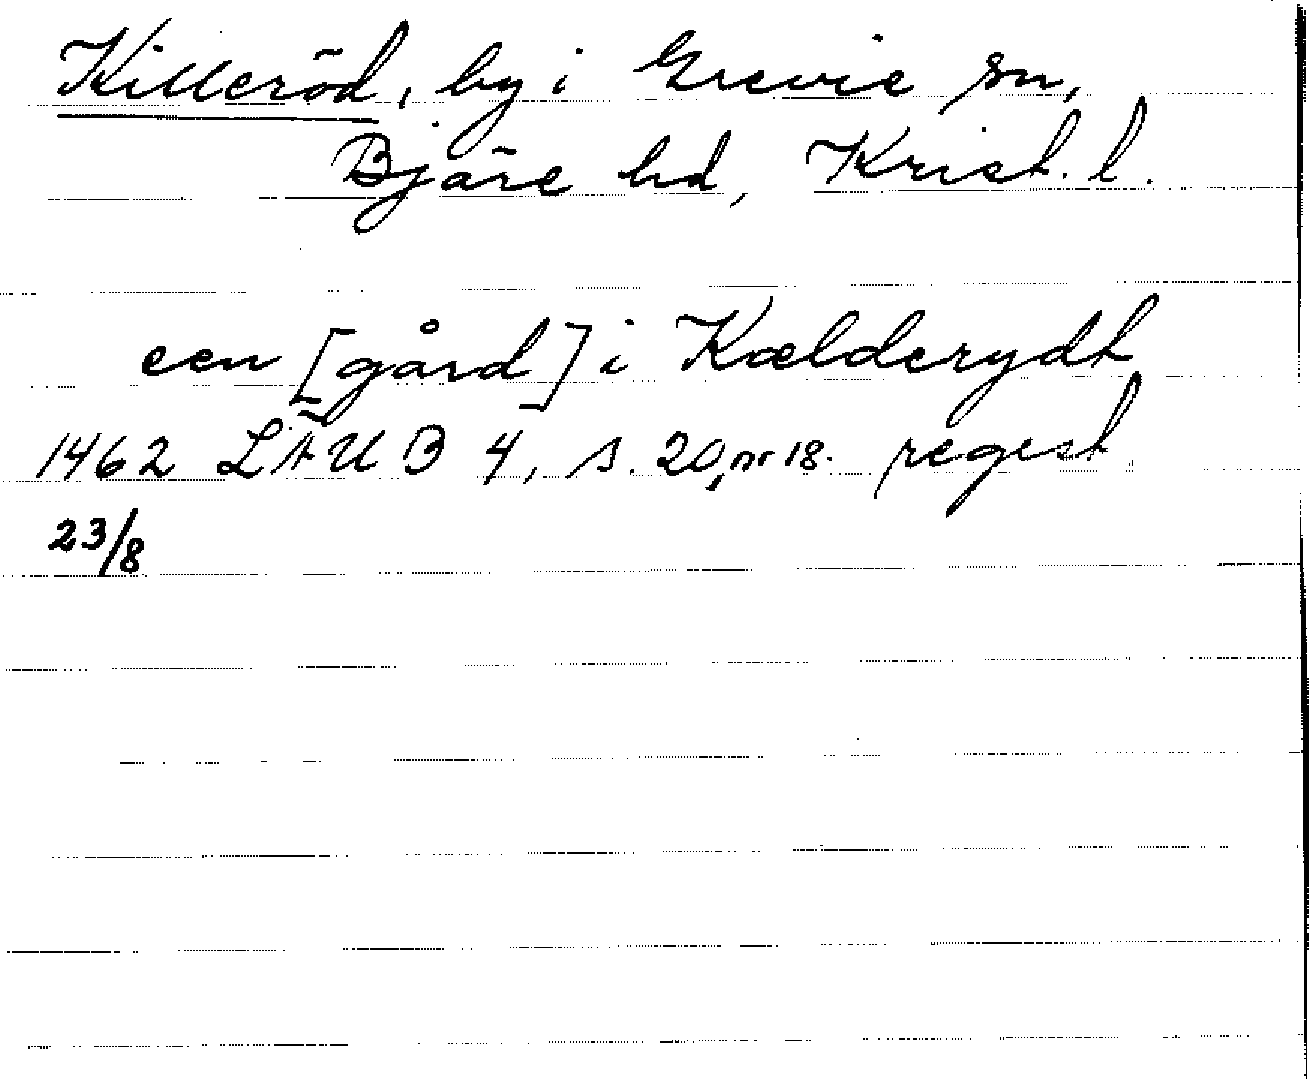 Killeröd, by i Grevie sn,
Bjäre hd, Krist. l.
een [gård] i Kælderydt
1462 LÄUB 4, s. 20, nr 18. regest
23/8